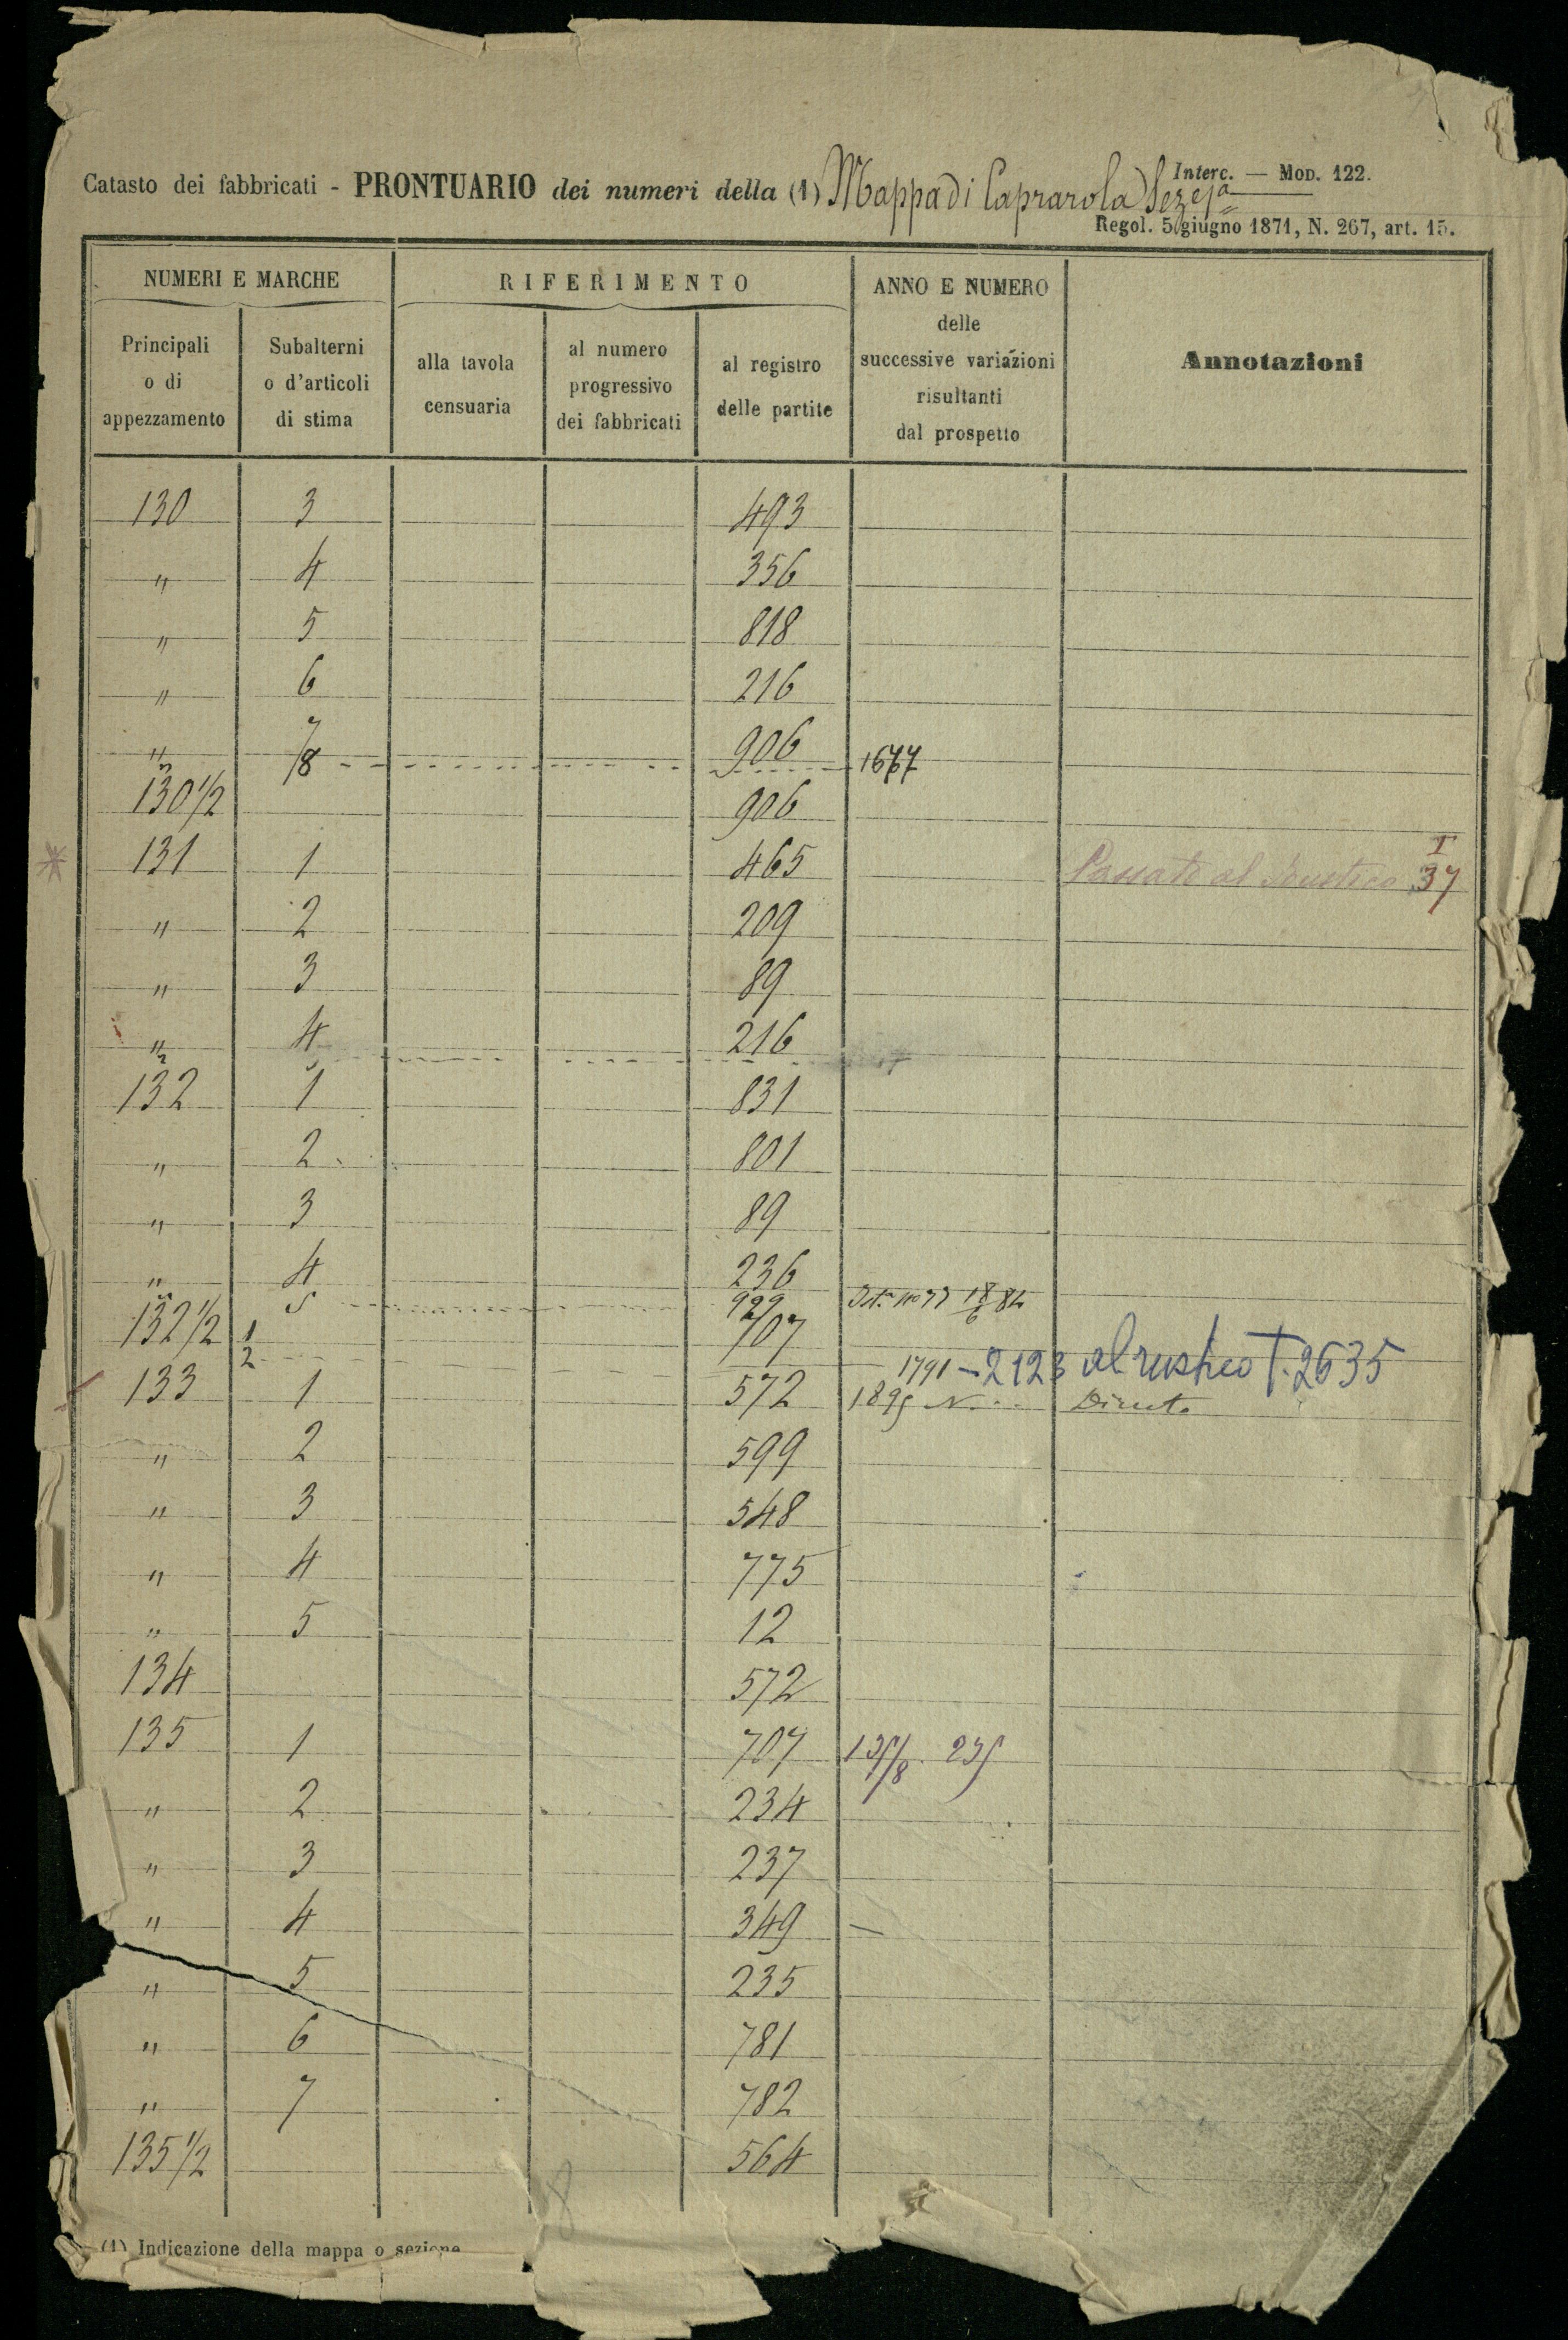 Interc. — Mod. 122.
Catasto dei fabbricati - PRONTUARIO dei numeri della (1) Mappa di Caprarola
Regol. 5 giugno 1871, N. 267, art. 15.
NUMERI E MARCHE RIFERIMENTO ANNO E NUMERO delle successive variazioni risultanti dal prospetto Annotazioni
Principali o di appezzamento Subalterni o d'articoli di stima alla tavola censuaria al numero progressivo dei fabbricati al registro delle partite
130 3 493
" 4 356
" 5 818
" 6 216
" 7 906
" 8 1677
130 1/2 906
131 1 465 Passato al I 37
" 2 209
" 3 89
" 4 216
"
132 1 831
" 2 801
" 3 89
" 4 236
" 5 929
132 1/2 1 707
2 1791 – 2123 al rustico T. 2635
133 1 572 1895 N.
" 2 599
" 3 548
" 4 775
" 5 12
134 572
135 1 707
" 2 234
" 3 237
" 4 349 —
" 5 235
" 6 781
" 7 782
135 1/2 564
8
(1) Indicazione della mappa o sezione